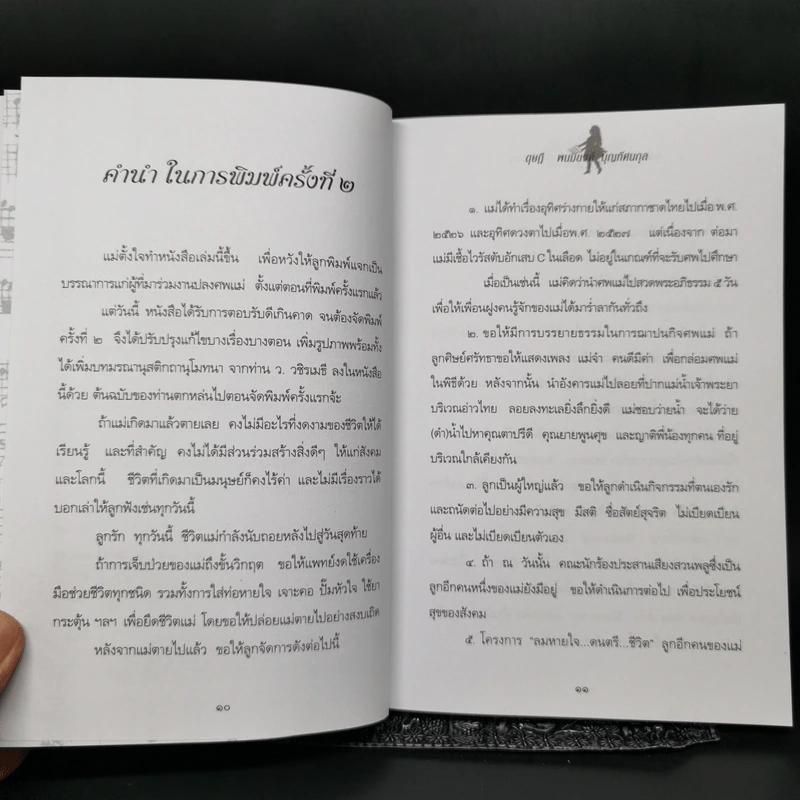 คำนำ ในการพิมพ์ครั้งที่ ๒
แม่ตั้งใจทำหนังสือเล่มนี้ขึ้น เพื่อหวังให้ลูกพิมพ์แจกเป็น
บรรณาการแก่ผู้ที่มาร่วมงานปลงศพแม่ ตั้งแต่ตอนที่พิมพ์ครั้งแรกแล้ว
แต่วันนี้ หนังสือได้รับการตอบรับดีเกินคาด จนต้องจัดพิมพ์
ครั้งที่ ๒ จึงได้ปรับปรุงแก้ไขบางเรื่องบางตอน เพิ่มรูปภาพพร้อมทั้ง
ได้เพิ่มบทมรณานุสติกถานุโมทนา จากท่าน ว. วชิรเมธี ลงในหนังสือ
นี้ด้วย ต้นฉบับของท่านตกหล่นไปตอนจัดพิมพ์ครั้งแรกจ้ะ
ถ้าแม่เกิดมาแล้วตายเลย คงไม่มีอะไรที่งดงามของชีวิตให้ได้
เรียนรู้ และที่สำคัญ คงไม่ได้มีส่วนร่วมสร้างสิ่งดีๆ ให้แก่สังคม
และโลกนี้ ชีวิตที่เกิดมาเป็นมนุษย์ก็คงไร้ค่า และไม่มีเรื่องราวได้
บอกเล่าให้ลูกฟังเช่นทุกวันนี้
ลูกรัก ทุกวันนี้ ชีวิตแม่กำลังนับถอยหลังไปสู่วันสุดท้าย
ถ้าการเจ็บป่วยของแม่ถึงขั้นวิกฤต ขอให้แพทย์งดใช้เครื่อง
มือช่วยชีวิตทุกชนิด รวมทั้งการใส่ท่อหายใจ เจาะคอ ปั๊มหัวใจ ใช้ยา
กระตุ้น ฯลฯ เพื่อยืดชีวิตแม่ โดยขอให้ปล่อยแม่ตายไปอย่างสงบเถิด
หลังจากแม่ตายไปแล้ว ขอให้ลูกจัดการดังต่อไปนี้
๑๐
ดุษฎี พนมยงค์ บุญทัศนกุล
๑. แม่ได้ทำเรื่องอุทิศร่างกายให้แก่สภากาชาดไทยไปเมื่อพ.ศ.
๒๕๒๖ และอุทิศดวงตาไปเมื่อพ.ศ. ๒๕๒๗ แต่เนื่องจาก ต่อมา
แม่มีเชื้อไวรัสตับอักเสบ C ในเลือด ไม่อยู่ในเกณฑ์ที่จะรับศพไปศึกษา
เมื่อเป็นเช่นนี้ แม่คิดว่านำศพแม่ไปสวดพระอภิธรรม ๕ วัน
เพื่อให้เพื่อนฝูงคนรู้จักของแม่ได้มาร่ำลากันทั่วถึง
๒. ขอให้มีการบรรยายธรรมในการฌาปนกิจศพแม่ ถ้า
ลูกศิษย์ศรัทธาขอให้แสดงเพลง แม่จ๋า คนดีมีค่า เพื่อกล่อมศพแม่
ในพิธีด้วย หลังจากนั้น นำอังคารแม่ไปลอยที่ปากแม่น้ำเจ้าพระยา
บริเวณอ่าวไทย ลอยลงทะเลยิ่งลึกยิ่งดี แม่ชอบว่ายน้ำ จะได้ว่าย
(ดำ)น้ำไปหาคุณตาปรีดี คุณยายพูนศุข และญาติพี่น้องทุกคน ที่อยู่
บริเวณใกล้เคียงกัน
๓. ลูกเป็นผู้ใหญ่แล้ว ขอให้ลูกดำเนินกิจกรรมที่ตนเองรัก
และถนัดต่อไปอย่างมีความสุข มีสติ ซื่อสัตย์สุจริต ไม่เบียดเบียน
ผู้อื่น และไม่เบียดเบียนตัวเอง
๔. ถ้า ณ วันนั้น คณะนักร้องประสานเสียงสวนพลูซึ่งเป็น
ลูกอีกคนหนึ่งของแม่ยังมีอยู่ ขอให้ดำเนินการต่อไป เพื่อประโยชน์
สุขของสังคม
๕. โครงการ "ลมหายใจ...ดนตรี...ชีวิต" ลูกอีกคนของแม่
๑๑